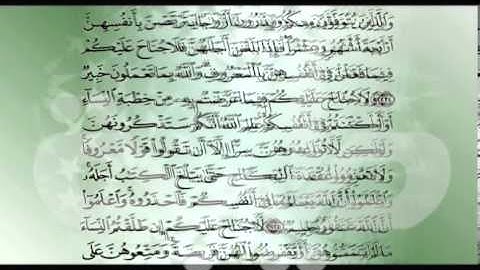 وَٱلَّذِينَ يُتَوَفَّوْنَ مِنكُمْ وَيَذَرُونَ أَزْوَٰجًا يَتَرَبَّصْنَ بِأَنفُسِهِنَّ
أَرْبَعَةَ أَشْهُرٍ وَعَشْرًا فَإِذَا بَلَغْنَ أَجَلَهُنَّ فَلَا جُنَاحَ عَلَيْكُمْ
فِيمَا فَعَلْنَ فِىٓ أَنفُسِهِنَّ بِٱلْمَعْرُوفِ وَٱللَّهُ بِمَا تَعْمَلُونَ خَبِيرٌ
٢٣٤ وَلَا جُنَاحَ عَلَيْكُمْ فِيمَا عَرَّضْتُم بِهِۦ مِنْ خِطْبَةِ ٱلنِّسَآءِ
أَوْ أَكْنَنتُمْ فِىٓ أَنفُسِكُمْ عَلِمَ ٱللَّهُ أَنَّكُمْ سَتَذْكُرُونَهُنَّ
وَلَٰكِن لَّا تُوَاعِدُوهُنَّ سِرًّا إِلَّآ أَن تَقُولُوا۟ قَوْلًا مَّعْرُوفًا
وَلَا تَعْزِمُوا۟ عُقْدَةَ ٱلنِّكَاحِ حَتَّىٰ يَبْلُغَ ٱلْكِتَٰبُ أَجَلَهُۥ
وَٱعْلَمُوٓا۟ أَنَّ ٱللَّهَ يَعْلَمُ مَا فِىٓ أَنفُسِكُمْ فَٱحْذَرُوهُ وَٱعْلَمُوٓا۟
أَنَّ ٱللَّهَ غَفُورٌ حَلِيمٌ ٢٣٥ لَّا جُنَاحَ عَلَيْكُمْ إِن طَلَّقْتُمُ ٱلنِّسَآءَ
مَا لَمْ تَمَسُّوهُنَّ أَوْ تَفْرِضُوا۟ لَهُنَّ فَرِيضَةً وَمَتِّعُوهُنَّ عَلَى